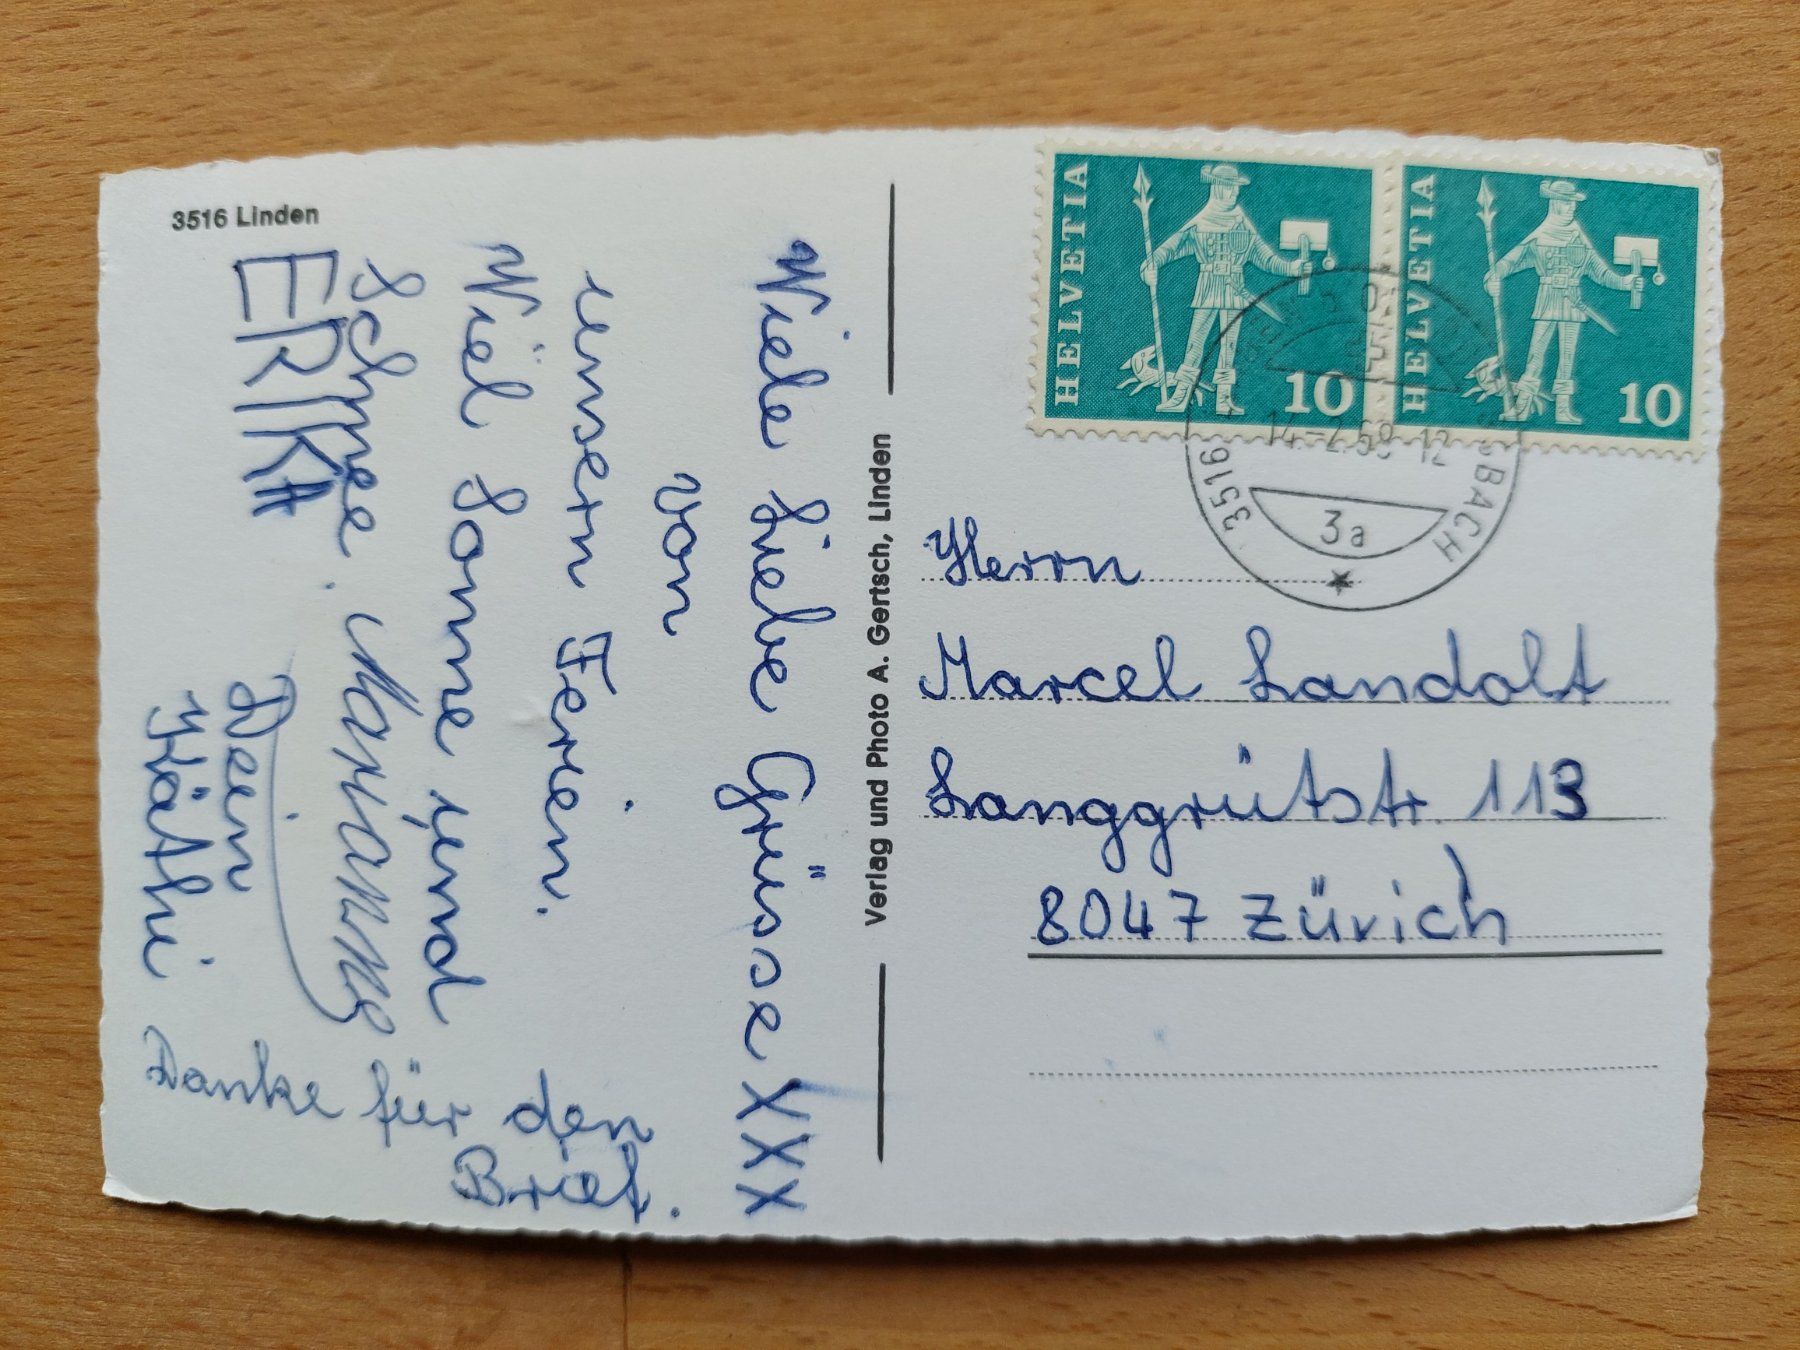 3516 Linden
Viele Liebe Grüsse XXX
von
unsern Ferien.
Viel Sonne und
Schnee. Marianne
ERIKA
Dein
Käthi
Danke für den
Brief.
Verlag und Photo A. Gertsch, Linden
HELVETIA
10
HELVETIA
10
3516
BACH
14.-2.68 12
3a
Herrn
Marcel Landolt
Langgrütstr. 113
8047 Zürich